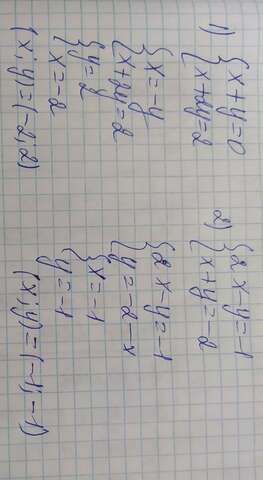 1) { x + y = 0
{ x + 2y = 2
{ x = -y
{ x + 2y = 2
{ y = 2
{ x = -2
(x; y) = (-2; 2)
2) { 2x - y = -1
{ x + y = -2
{ 2x - y = -1
{ y = -2 - x
{ x = -1
{ y = -1
(x; y) = (-1; -1)